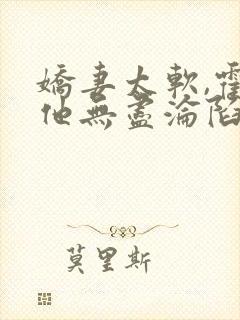 嬌妻太軟,霍
他無盡淪陷
莫里斯